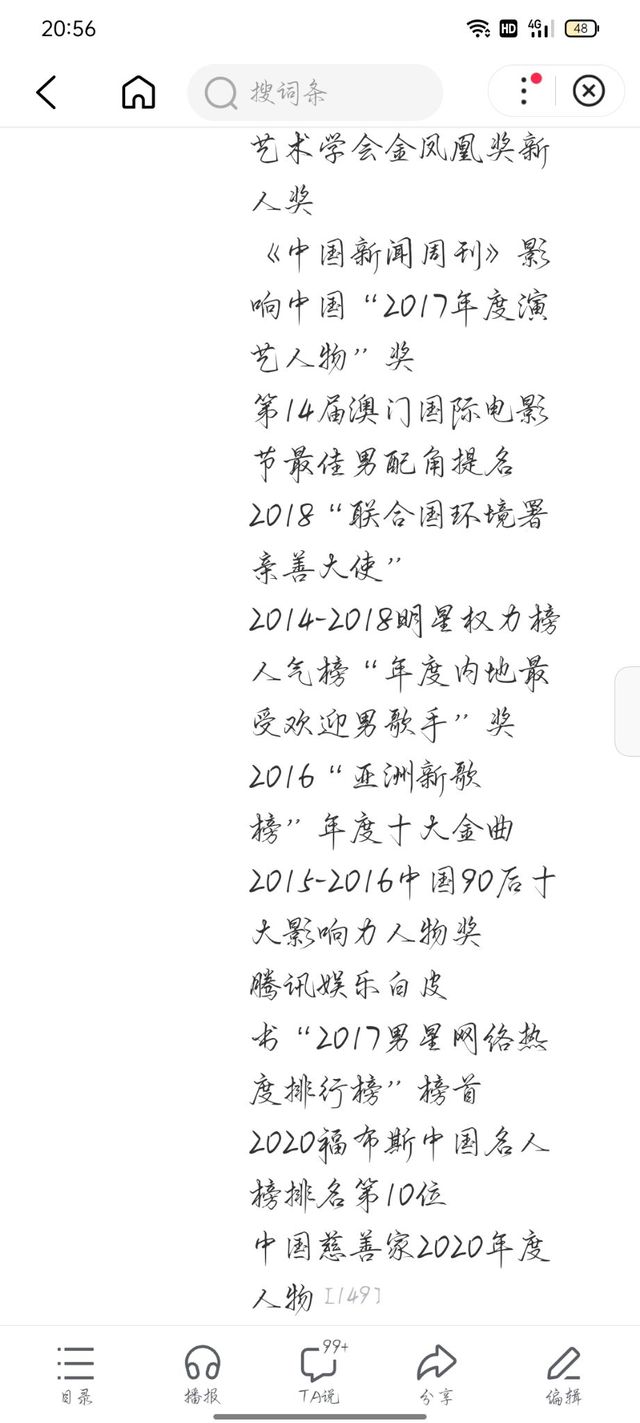 20:56
HD
4G
48
搜词条
艺术学会金凤凰奖新
人奖
《中国新闻周刊》影
响中国“2017年度演
艺人物”奖
第14届澳门国际电影
节最佳男配角提名
2018“联合国环境署
亲善大使”
2014-2018明星权力榜
人气榜“年度内地最
受欢迎男歌手”奖
2016“亚洲新歌
榜”年度十大金曲
2015-2016中国90后十
大影响力人物奖
腾讯娱乐白皮
书“2017男星网络热
度排行榜”榜首
2020福布斯中国名人
榜排名第10位
中国慈善家2020年度
人物[149]
99+
目录 播报 TA说 分享 编辑